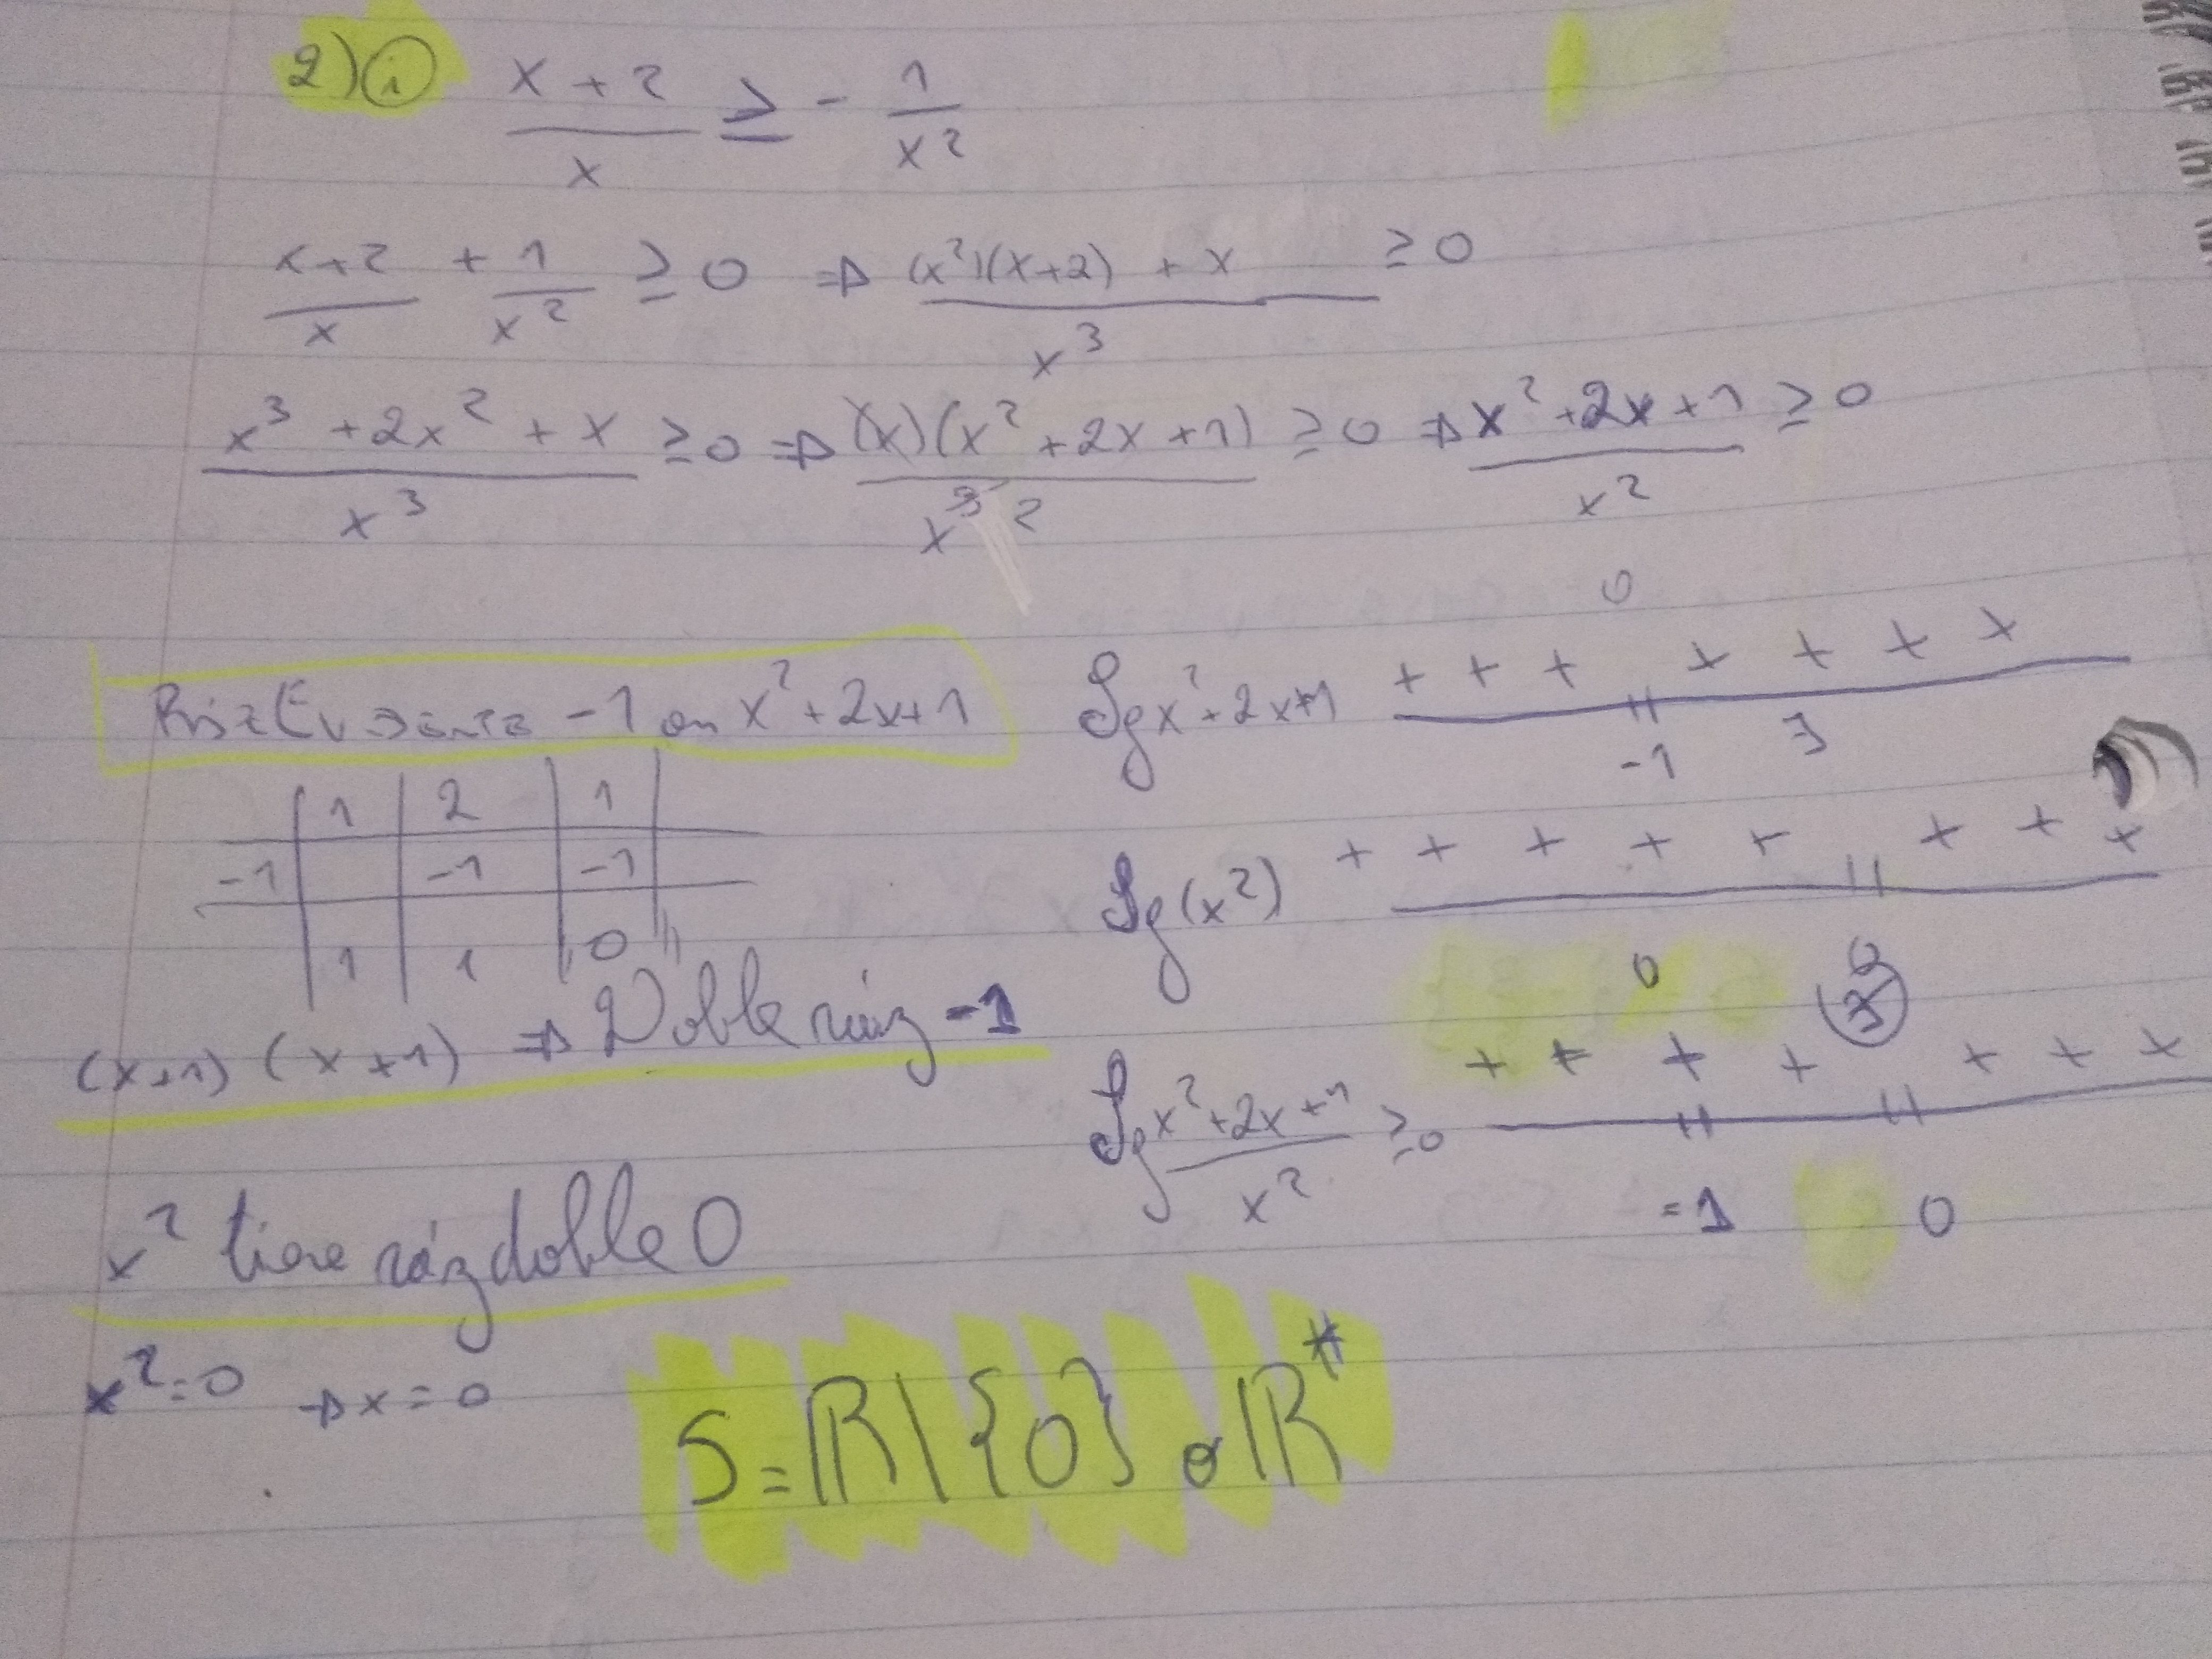 2) i) (x+2)/x ≥ - 1/x²
(x+2)/x + 1/x² ≥ 0 ⇒ ((x²)(x+2) + x)/x³ ≥ 0
(x³ + 2x² + x)/x³ ≥ 0 ⇒ (x)(x² + 2x + 1)/x³ 2 ≥ 0 ⇒ (x² + 2x + 1)/x² ≥ 0
-1 en x² + 2x + 1
1 | 2 | 1
-1 | | -1 | -1
1 | 1 | 0
(x+1) (x+1) ⇒ Doble raíz -1
x² tiene raíz doble 0
x² = 0 → x = 0
Sg x² + 2x + 1 + + + 0 + + + +
-1
Sg(x²) + + + + + + + +
0
Sg (x² + 2x + 1)/x² ≥ 0 + + + + + + +
0
-1 0
S = ℝ \ {0} o ℝ*